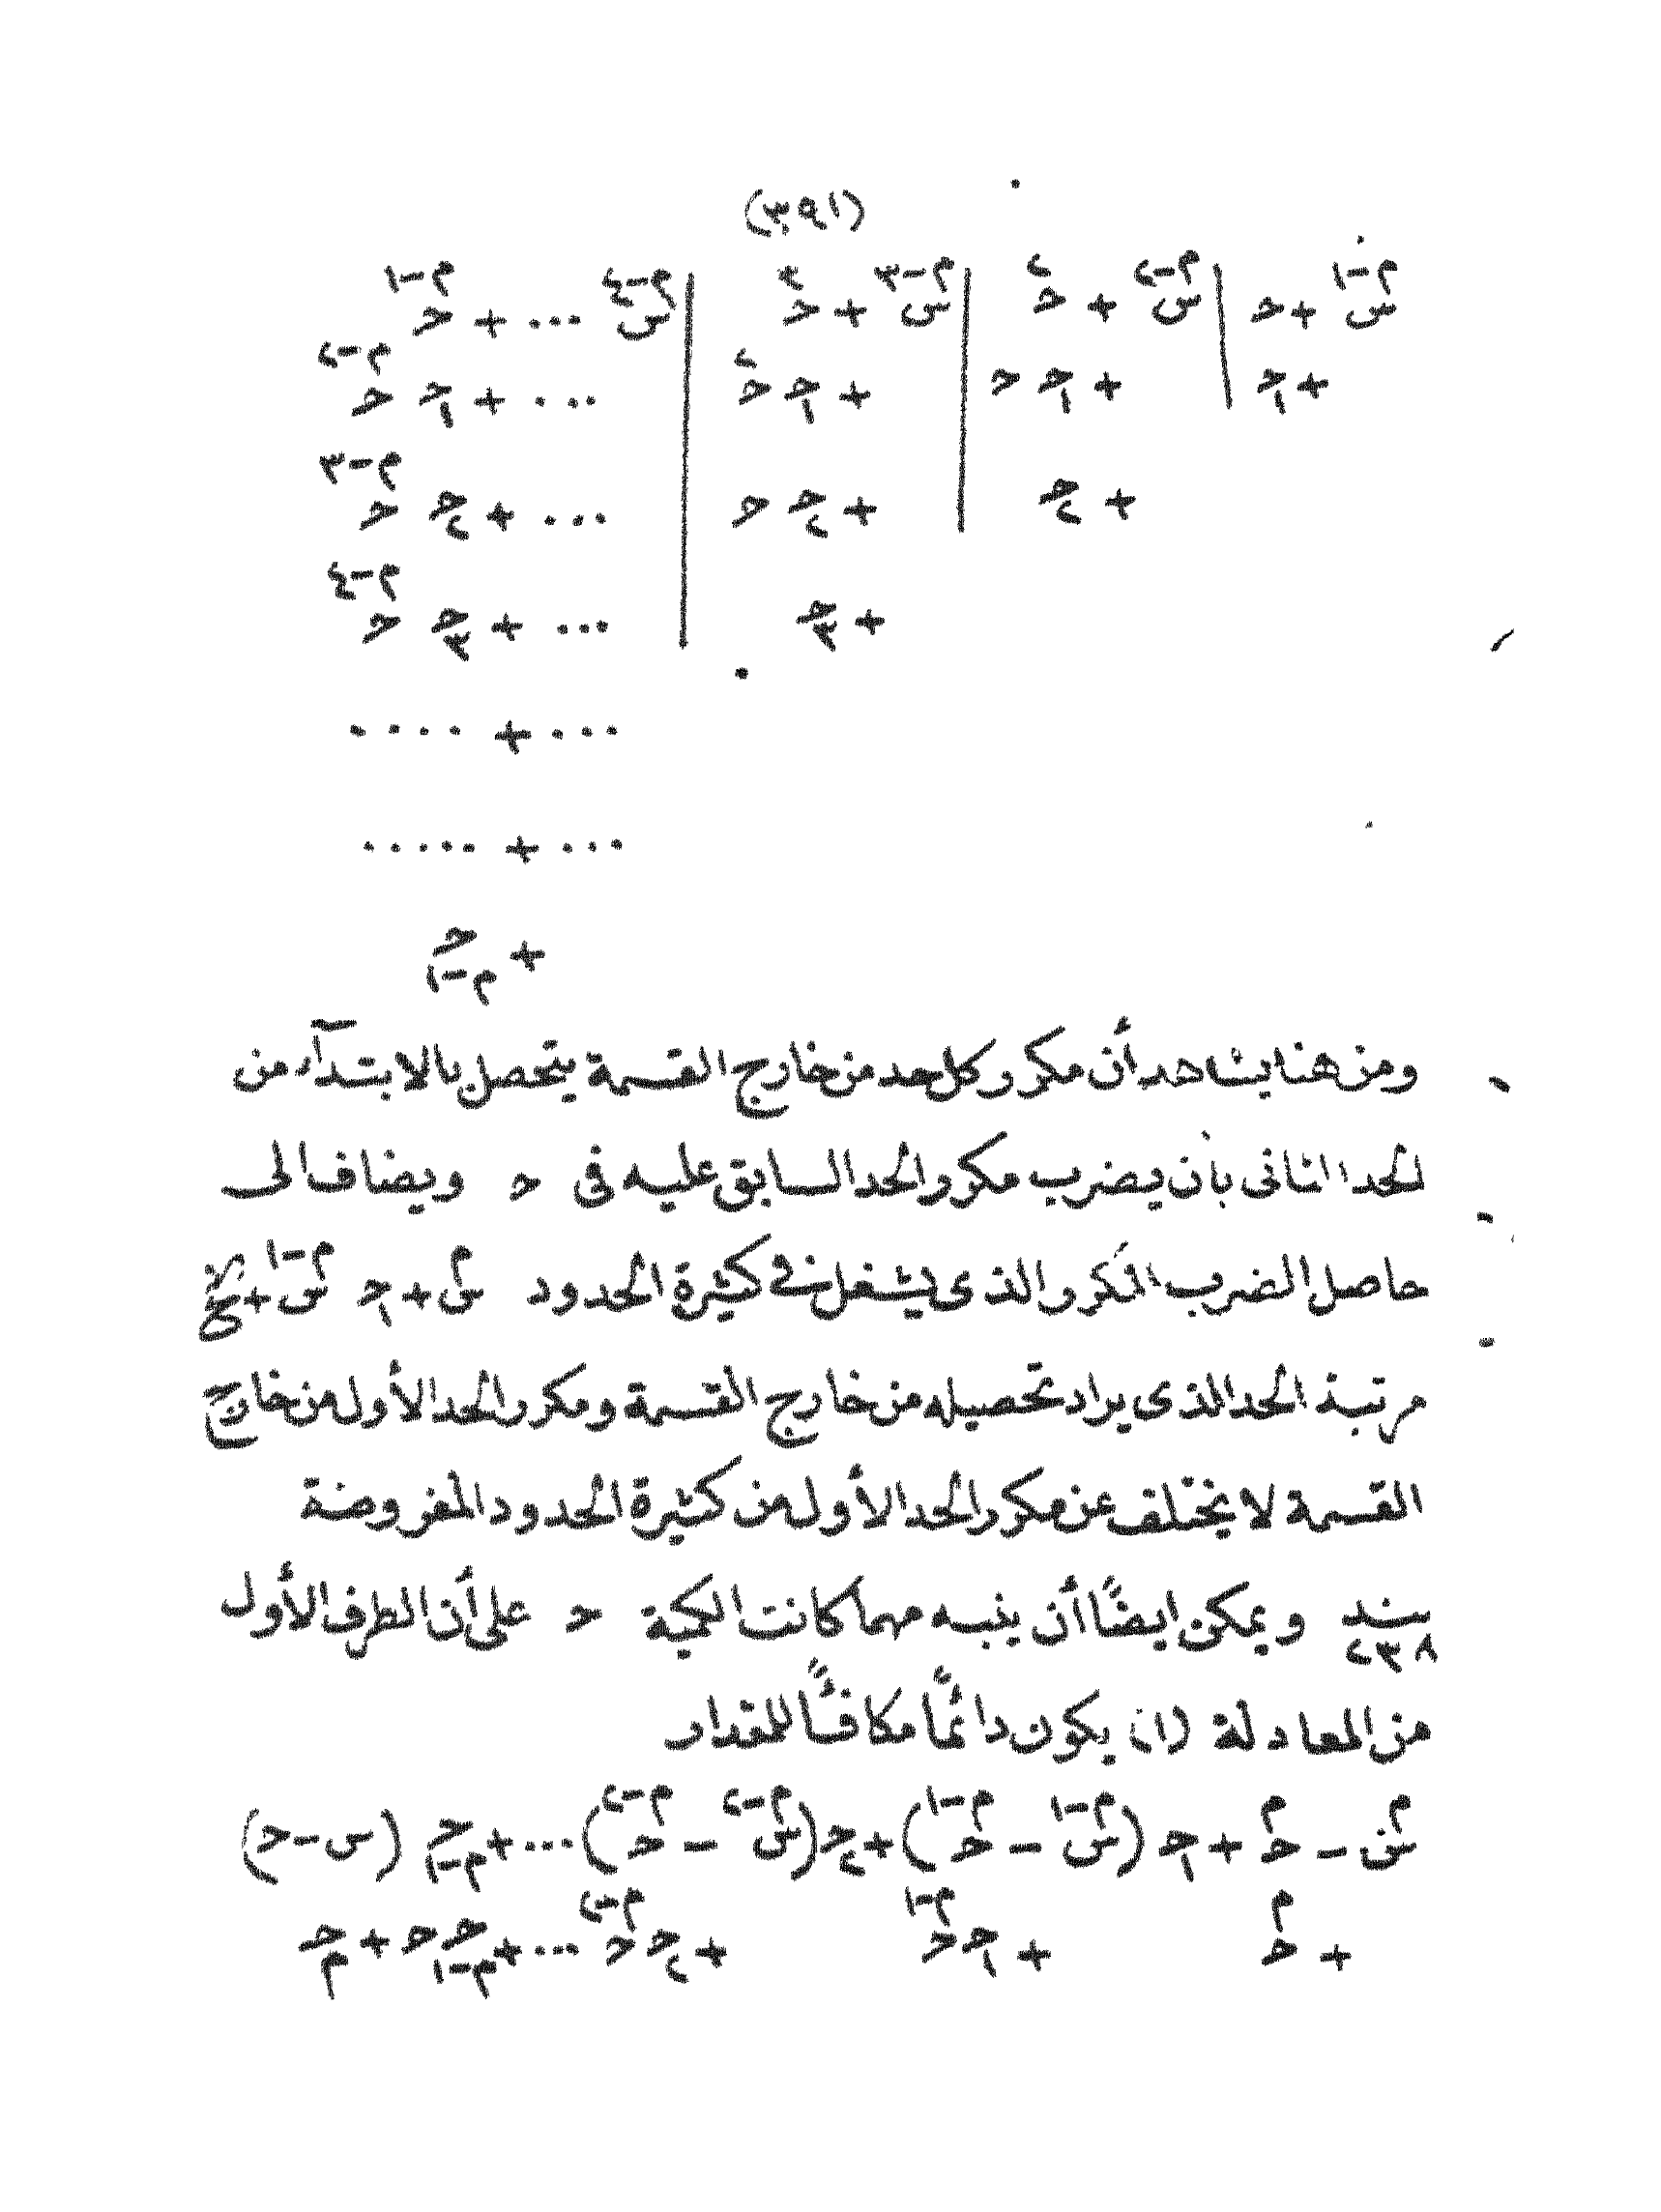 (٣٩١)
س^{م-١} + ح | س^{م-٢} + ح^٢ | س^{م-٣} + ح^٣ | س^{م-٤} ... + ح^{م-١}
+ ح_١ | + ح_١ ح | + ح_١ ح^٢ | ... + ح_١ ح^{م-٢}
+ ح_٢ | + ح_٢ ح | ... + ح_٢ ح^{م-٣}
+ ح_٣ | ... + ح_٣ ح^{م-٤}
... + ....
... + .....
+ ح_{م-١}
ومن هنا يشاهد أن مكرر كل حد من خارج القسمة يتحصل بالابتدآء من
الحد الثانى بأن يضرب مكرر الحد السابق عليه فى ح ويضاف الى
حاصل الضرب المكرر الذى يشغل فى كثيرة الحدود س^م + ح_١ س^{م-١} + الخ
مرتبة الحد الذى يراد تحصيله من خارج القسمة ومكرر الحد الأول من خارج
القسمة لا يختلف عن مكرر الحد الأول من كثيرة الحدود المفروضة
سند ٢٣٨ ويمكن ايضًا أن ينبه مهما كانت الكمية ح على أن الطرف الأول
من المعادلة (١) يكون دائمًا مكافئًا للمقدار
س^م - ح^م + ح_١ (س^{م-١} - ح^{م-١}) + ح_٢ (س^{م-٢} - ح^{م-٢}) ... + ح_{م-١} (س - ح)
+ ح^م + ح_١ ح^{م-١} + ح_٢ ح^{م-٢} ... + ح_{م-١} ح + ح_م